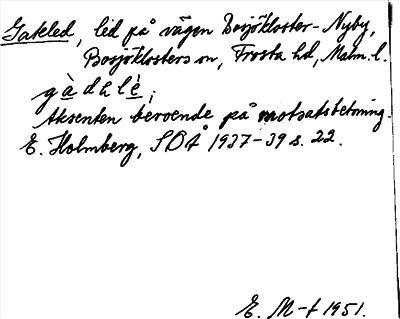 Gateled, led på vägen Bosjökloster-Nyby,
Bosjöklosters sn, Frosta hd, Malm. l.
gàdhlè;
Aksenten beroende på motsatsbetoning.
E. Holmberg, SOÅ 1937-39 s. 22.
E. M-t 1951.